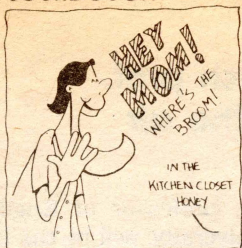 HEY
MOM!
WHERE'S THE
BROOM!
IN THE
KITCHEN CLOSET
HONEY